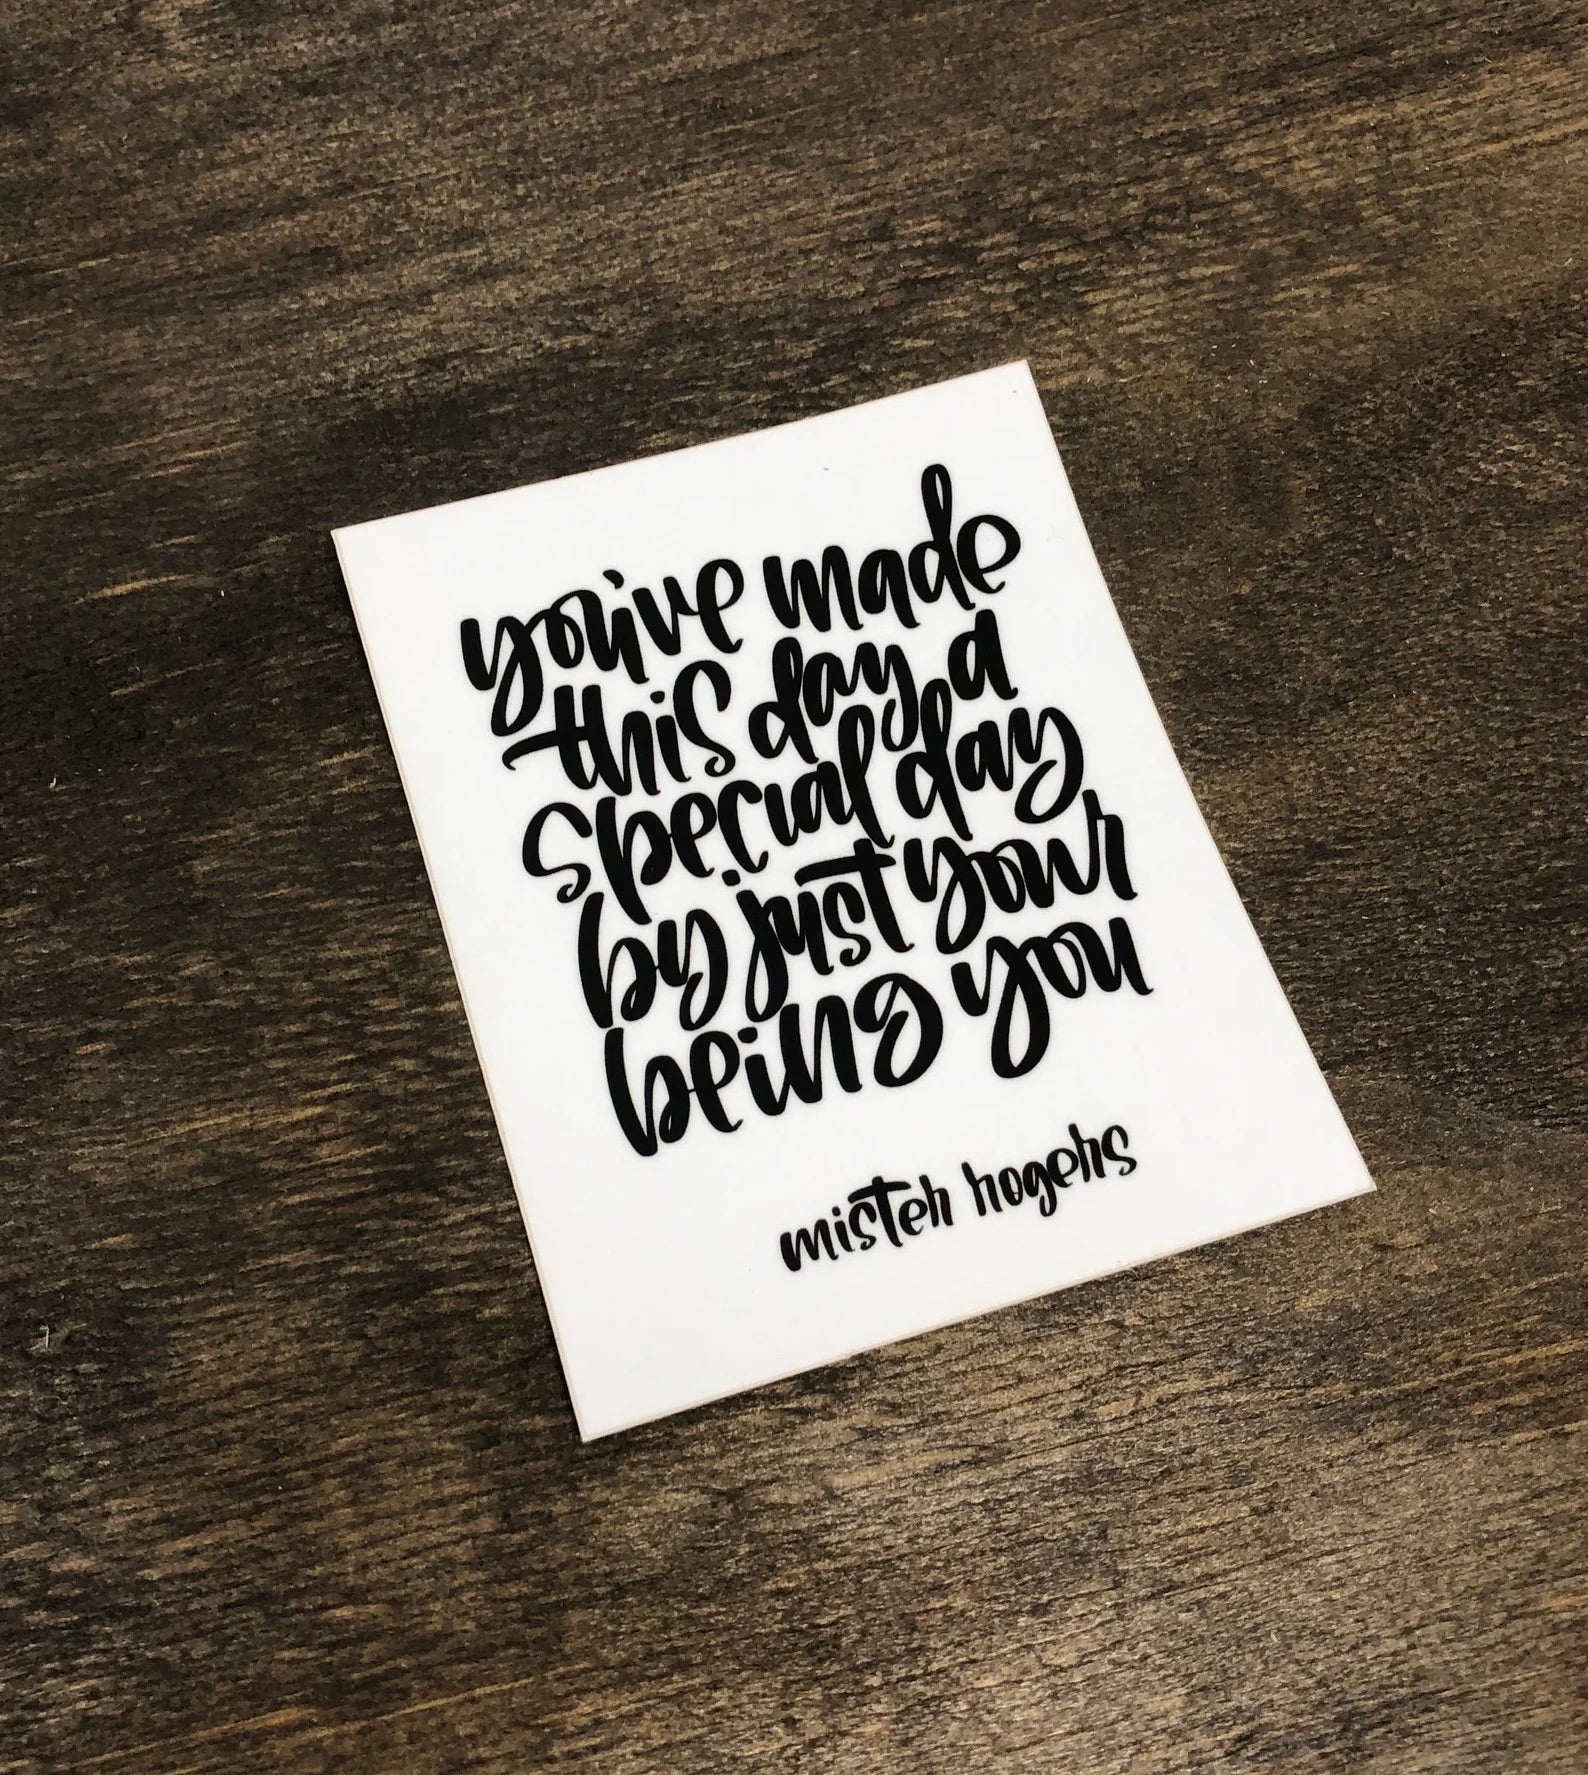 you've made
this day a
special day
by just your
being you
mister rogers